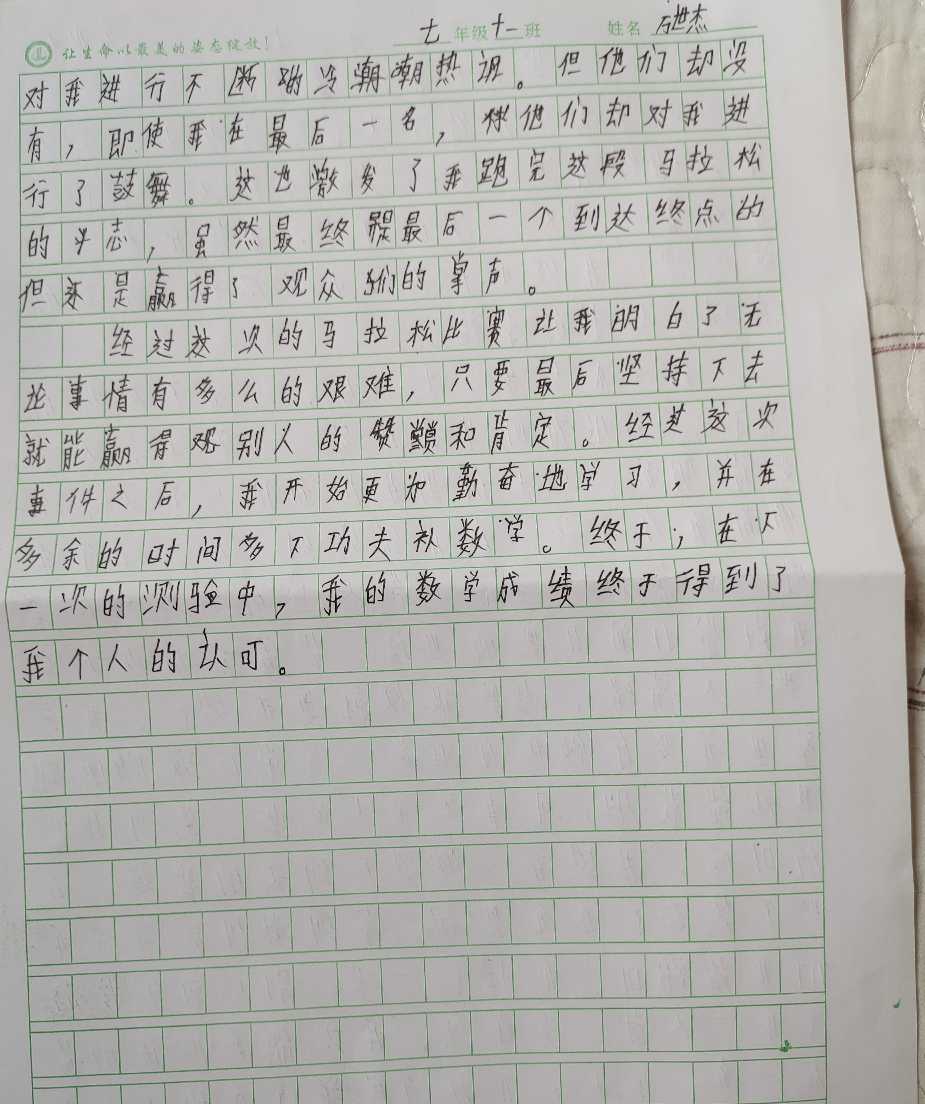 让生命以最美的姿态绽放！ 七 年级 十一 班 姓名 万世杰
对我进行不断的冷潮潮热讽。但他们却没
有，即使我在最后一名，但他们却对我进
行了鼓舞。这也激发了我跑完这段马拉松
的斗志，虽然最终是最后一个到达终点的
但还是赢得了观众们的掌声。
经过这次的马拉松比赛让我明白了无
论事情有多么的艰难，只要最后坚持下去
就能赢得别人的赞和肯定。经过这次
事件之后，我开始更加勤奋地学习，并在
多余的时间多下功夫补数学。终于；在下
一次的测验中，我的数学成绩终于得到了
我个人的认可。